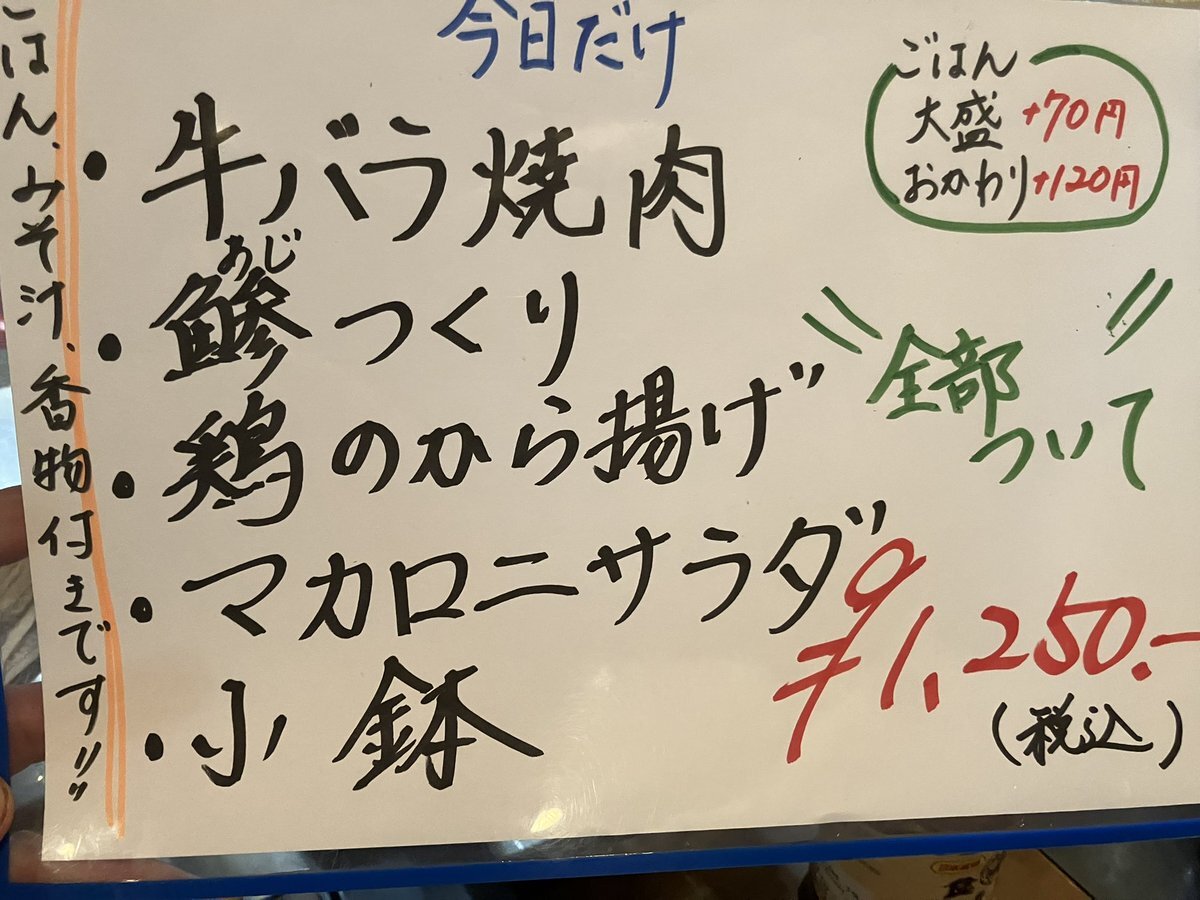 今日だけ
・牛バラ焼肉
あじ
・鯵つくり
・鶏のから揚げ
・マカロニサラダ
・小鉢
ごはん
大盛 +70円
おかわり +120円
全部
ついて
¥1,250.-
(税込)
ごはん、みそ汁、香物付きです!!